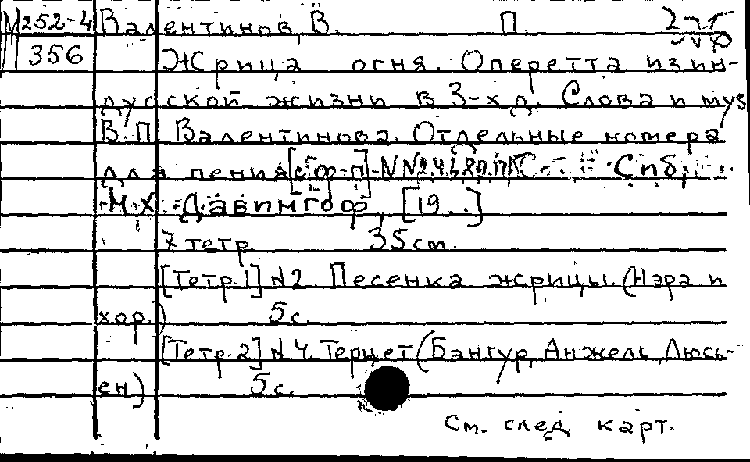 М252-4 Валентинов, В. П.
356 Жрица огня. Оперетта из ин-
дусской жизни в 3-х д. Слова и муз
В.П. Валентинова. Отдельные номера
для пения [с ф-п] Спб,
М.Х. Давингоф, [19..]
7 тетр. 35 см.
[Тетр. 1] N 2. Песенка жрицы. (Нэра и
хор.) 5 с.
[Тетр. 2] N 4. Терцет (Бангур, Анжель, Люсь-
ен) 5 с.
См. след карт.